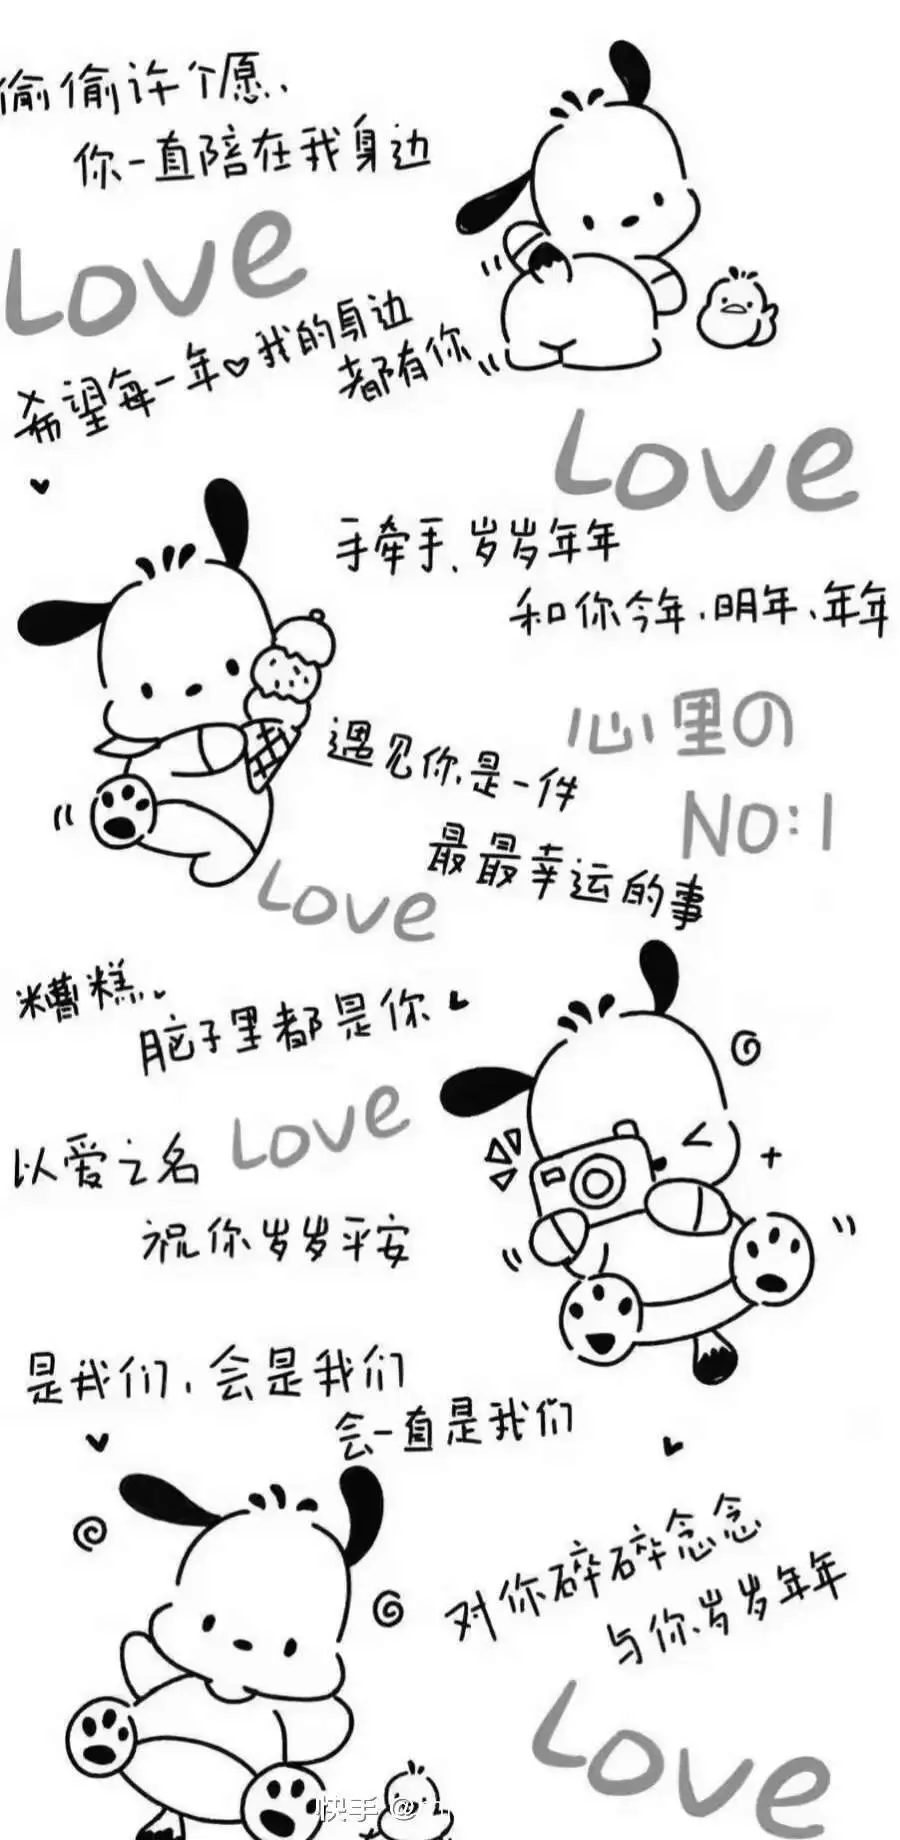 偷偷许个愿、
你一直陪在我身边
Love
希望每一年♡我的身边
都有你
Love
手牵手、岁岁年年
和你今年、明年、年年
心里の
NO:1
遇见你是一件
最最幸运的事
Love
糟糕、
脑子里都是你
Love
以爱之名
祝你岁岁平安
是我们、会是我们
会一直是我们
对你碎碎念念
与你岁岁年年
Love
快手 @